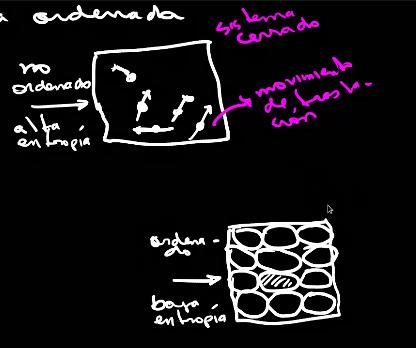 a ordenada
sistema
cerrado
no
ordenado
alta
entropía
movimiento
de trasla-
ción
ordena-
do
baja
entropía